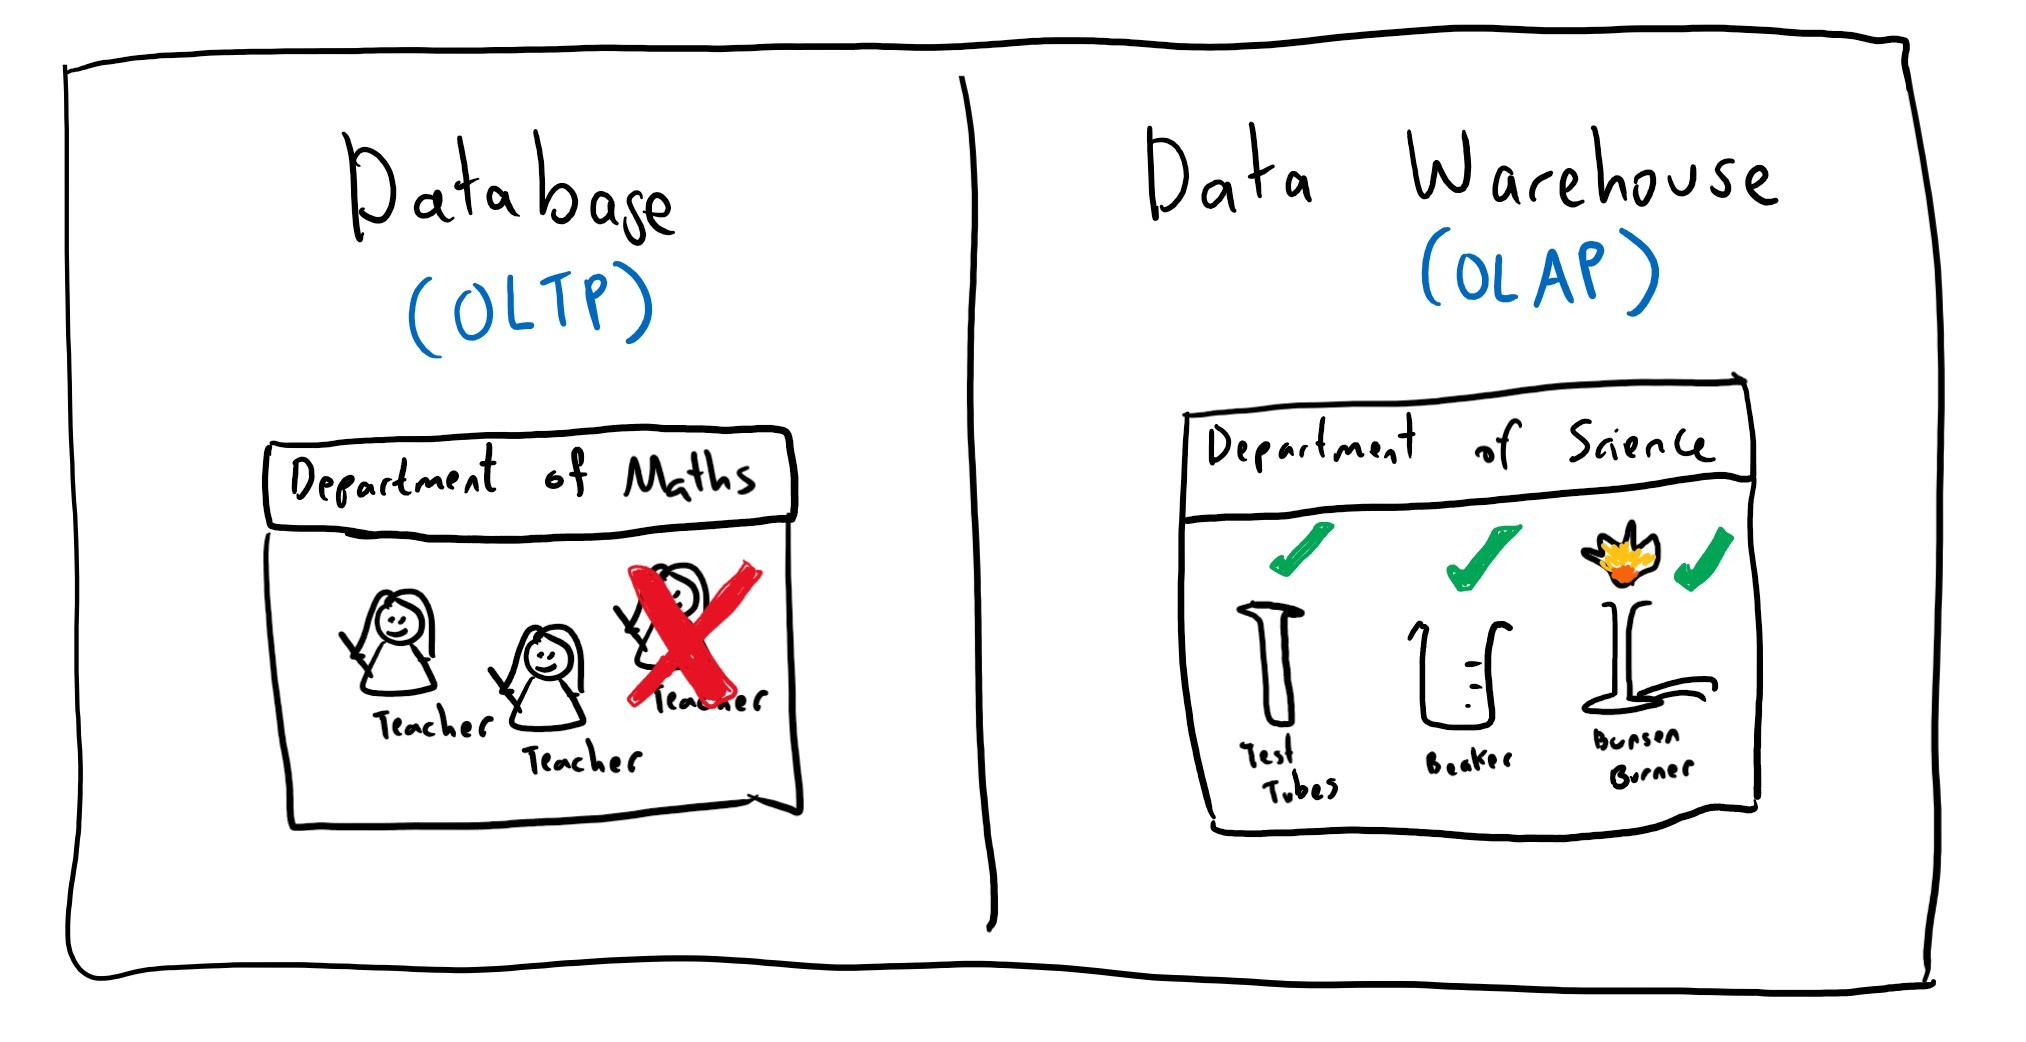 Database
(OLTP)
Department of Maths
Teacher
Teacher
Teacher
Data Warehouse
(OLAP)
Department of Science
Test
Tubes
Beaker
Bunsen
Burner